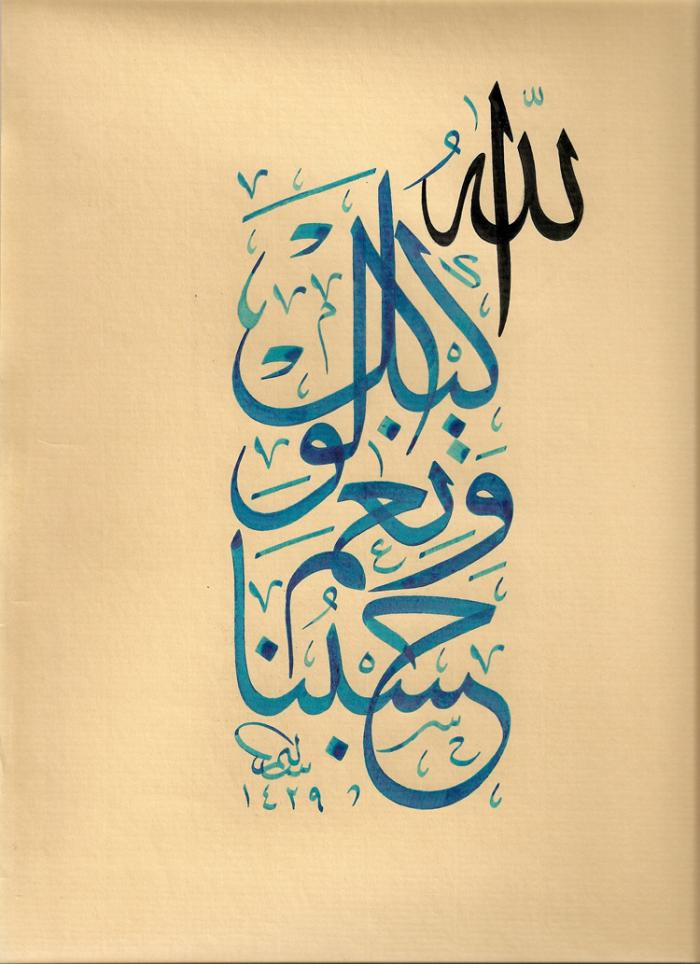 حَسْبُنَا اللّٰهُ وَنِعْمَ الْوَكِيل
١٤٢٩